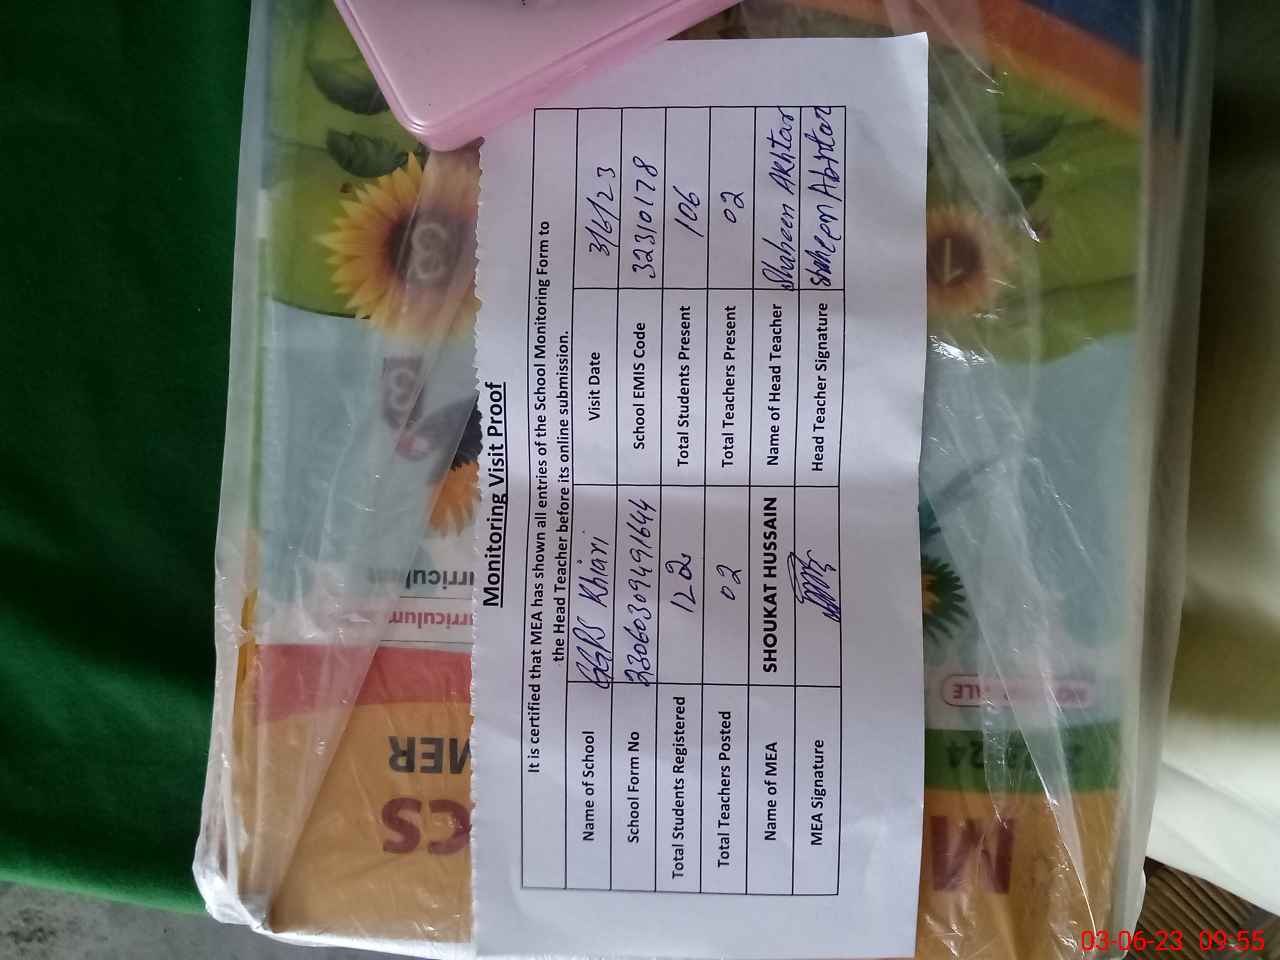 Monitoring Visit Proof
It is certified that MEA has shown all entries of the School Monitoring Form to
the Head Teacher before its online submission.
Name of School GGPS Khiari Visit Date 3/6/23
School Form No 23060309491644 School EMIS Code 32310178
Total Students Registered 122 Total Students Present 106
Total Teachers Posted 02 Total Teachers Present 02
Name of MEA SHOUKAT HUSSAIN Name of Head Teacher Shaheen Akhtar
MEA Signature Head Teacher Signature Shaheen Akhtar
03-06-23 09:55